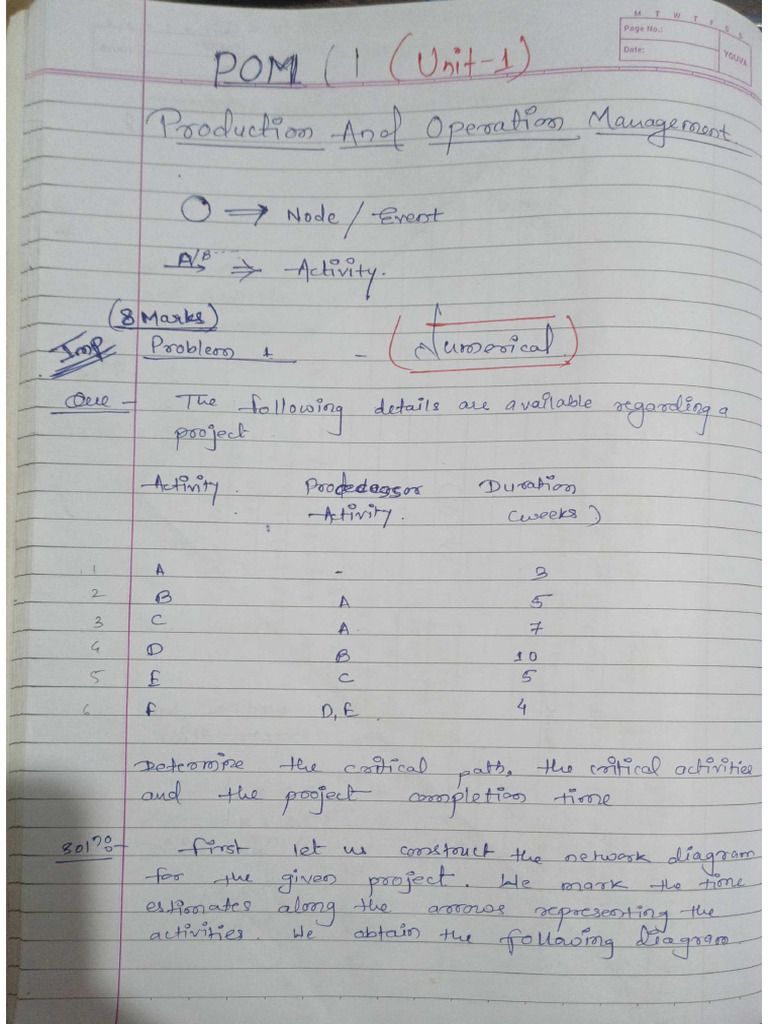 M T W T F S S
Page No.:
Date:
YOUVA
POM ( 1 ( Unit-1)
Production And Operation Management.
→ Node / Event
A/B.... ⇒ Activity.
(8 Marks)
Imp Problem 1 - (Numerical)
Que - The following details are available regarding a
project
Activity. Prodedessor Duration
Activity. (weeks)
1 A - 3
2 B A 5
3 C A. 7
4 D B 10
5 E C 5
6 F D, E. 4
Determine the critical path, the critical activities
and the project completion time
Soln:- First let us construct the network diagram
for the given project. We mark the time
estimates along the arrows representing the
activities. We obtain the following diagram